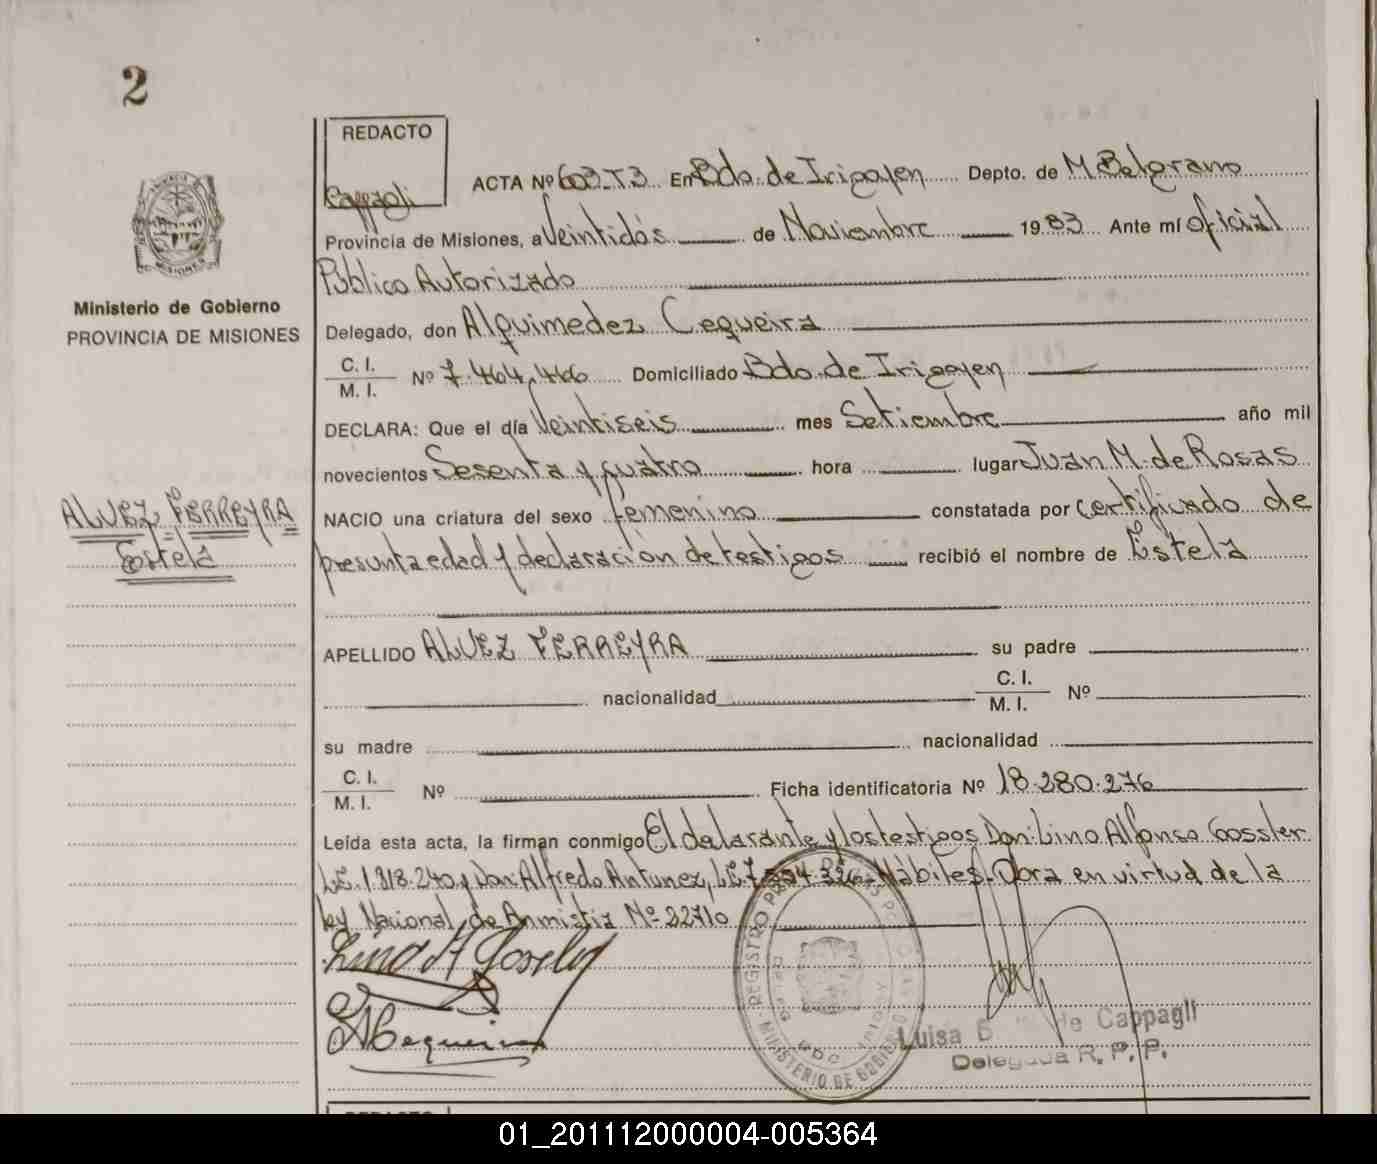 2
REDACTO
Cappagli
ACTA Nº 603-T3 En Bdo. de Irigoyen Depto. de M. Belgrano
Provincia de Misiones, a Veintidós de Noviembre 1983 Ante mí Oficial
Público Autorizado
Ministerio de Gobierno
PROVINCIA DE MISIONES
Delegado, don Alquimedez Cequeira
C. I.
M. I.
Nº 7.464.466 Domiciliado Bdo. de Irigoyen
DECLARA: Que el día Veintiseis mes Setiembre año mil
novecientos Sesenta y cuatro hora lugar Juan M. de Rosas
ALVEZ FERREYRA
Estela
NACIO una criatura del sexo femenino constatada por certificado de
presunta edad y declaración de testigos recibió el nombre de Estela
APELLIDO ALVEZ FERREYRA su padre
nacionalidad C. I.
M. I. Nº
su madre nacionalidad
C. I.
M. I.
Nº Ficha identificatoria Nº 18.280.276
Leída esta acta, la firman conmigo El delarante y los testigos Don: Lino Alfonso Gossler
L.E. 1.818.240 y Don Alfredo Antunez, L.E. 7.554.326 - Hábiles. Obra en virtud de la
ley Nacional de Anmistia Nº 22710
REGISTRO
MINISTERIO DE GOBIERNO
Luisa de Cappagli
Delegada R. P. P.
REDACTO
01_201112000004-005364